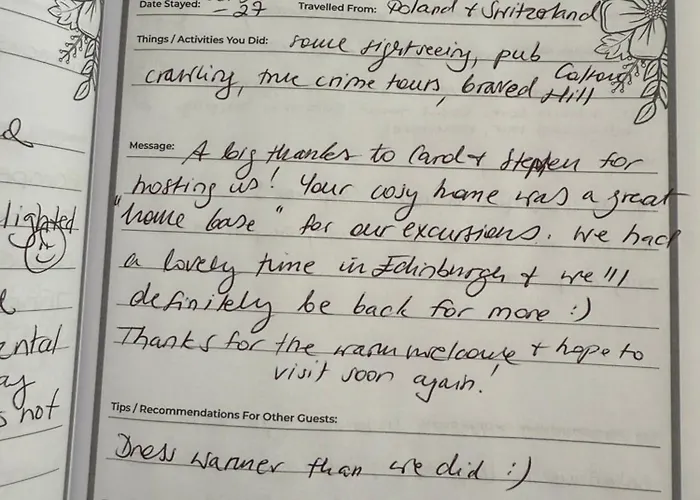 Date Stayed: - 27 Travelled From: Poland + Switzerland
Things / Activities You Did: some sightseeing, pub
crawling, true crime tours, braved Calton Hill
Message: A big thanks to Carol + Stephen for
hosting us! Your cosy home was a great
"home base" for our excursions. We had
a lovely time in Edinburgh + we'll
definitely be back for more :)
Thanks for the warm welcome + hope to
visit soon again!
Tips / Recommendations For Other Guests:
Dress warmer than we did :)
lighted
ental
ay
s not